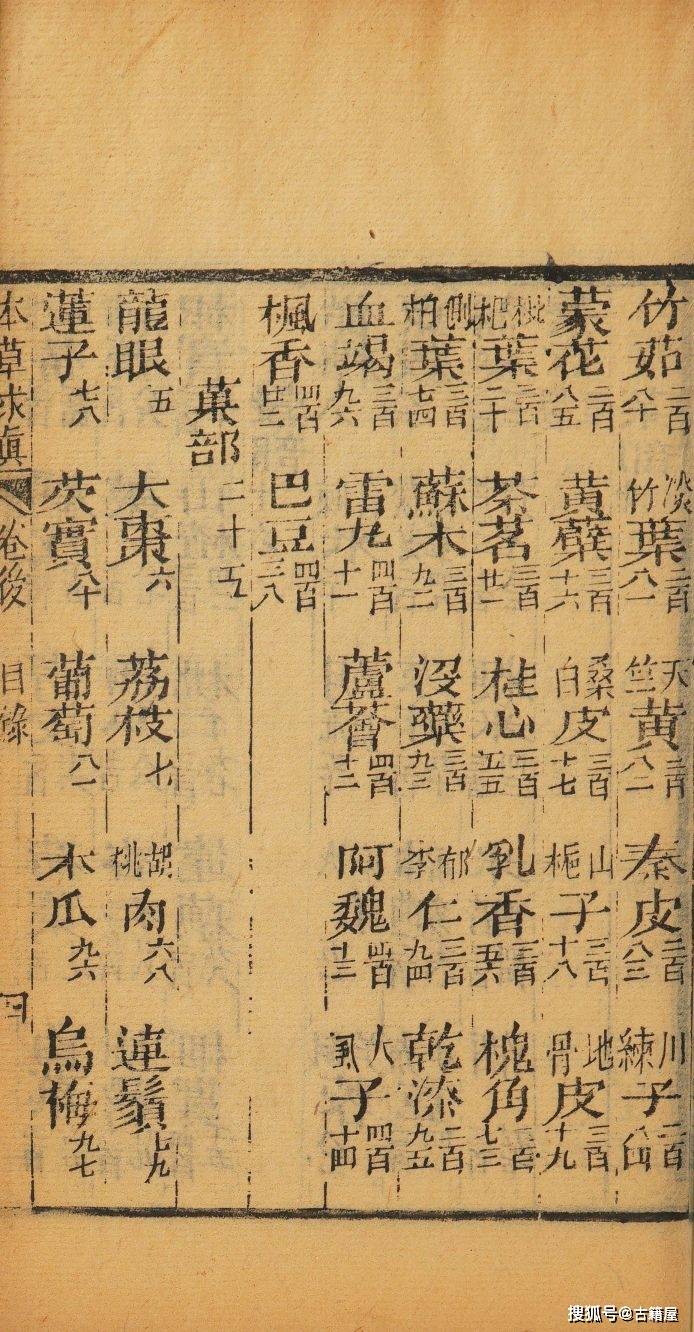 竹茹 二百八十 淡竹葉 二百八一 天竺黃 二百八二 秦皮 二百八三 川練子 二百八四
蒙花 二百八五 黃蘗 三百十六 桑白皮 三百十七 山梔子 三百十八 地骨皮 三百十九
枇杷葉 三百二十 茶茗 三百廿一 桂心 三百五五 乳香 三百五六 槐角 三百七三
側柏葉 三百七四 蘇木 三百九二 沒藥 三百九三 郁李仁 三百九四 乾漆 三百九五
血竭 三百九六 雷丸 四百十一 蘆薈 四百十二 阿魏 四百十三 大風子 四百十四
楓香 四百廿二 巴豆 四百三八
菓部 二十五
龍眼 五 大棗 六 荔枝 七 胡桃肉 六八 蓮鬚 七九
蓮子 七八 芡實 八十 葡萄 八一 木瓜 九六 烏梅 九七
本草求真 卷後 目錄 四
搜狐号@古籍屋